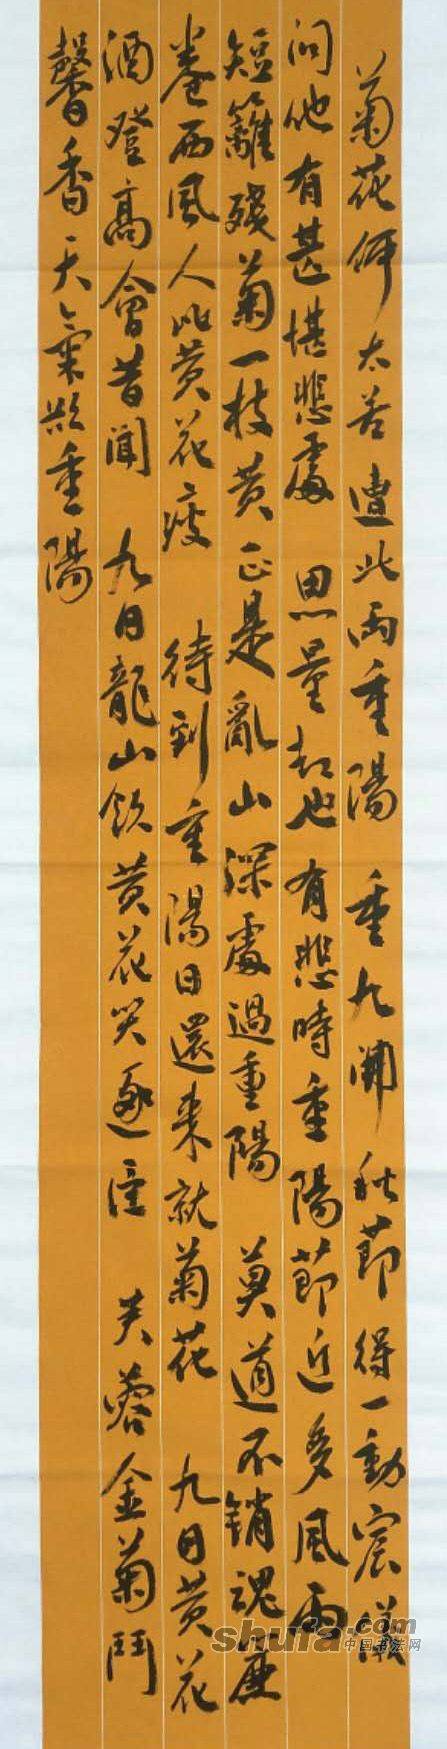 菊花何太苦 遭此兩重陽 重九開秋節 得一動宸儀
問他有甚堪悲處 思量却也有悲時 重陽節近多風雨
短籬殘菊一枝黃 正是亂山深處過重陽 莫道不銷魂 簾
卷西風 人比黃花瘦 待到重陽日 還來就菊花 九日黃花
酒 登高會昔聞 九日龍山飲 黃花笑逐臣 芙蓉金菊鬥
馨香 天氣欲重陽
shufa.com
中国书法网